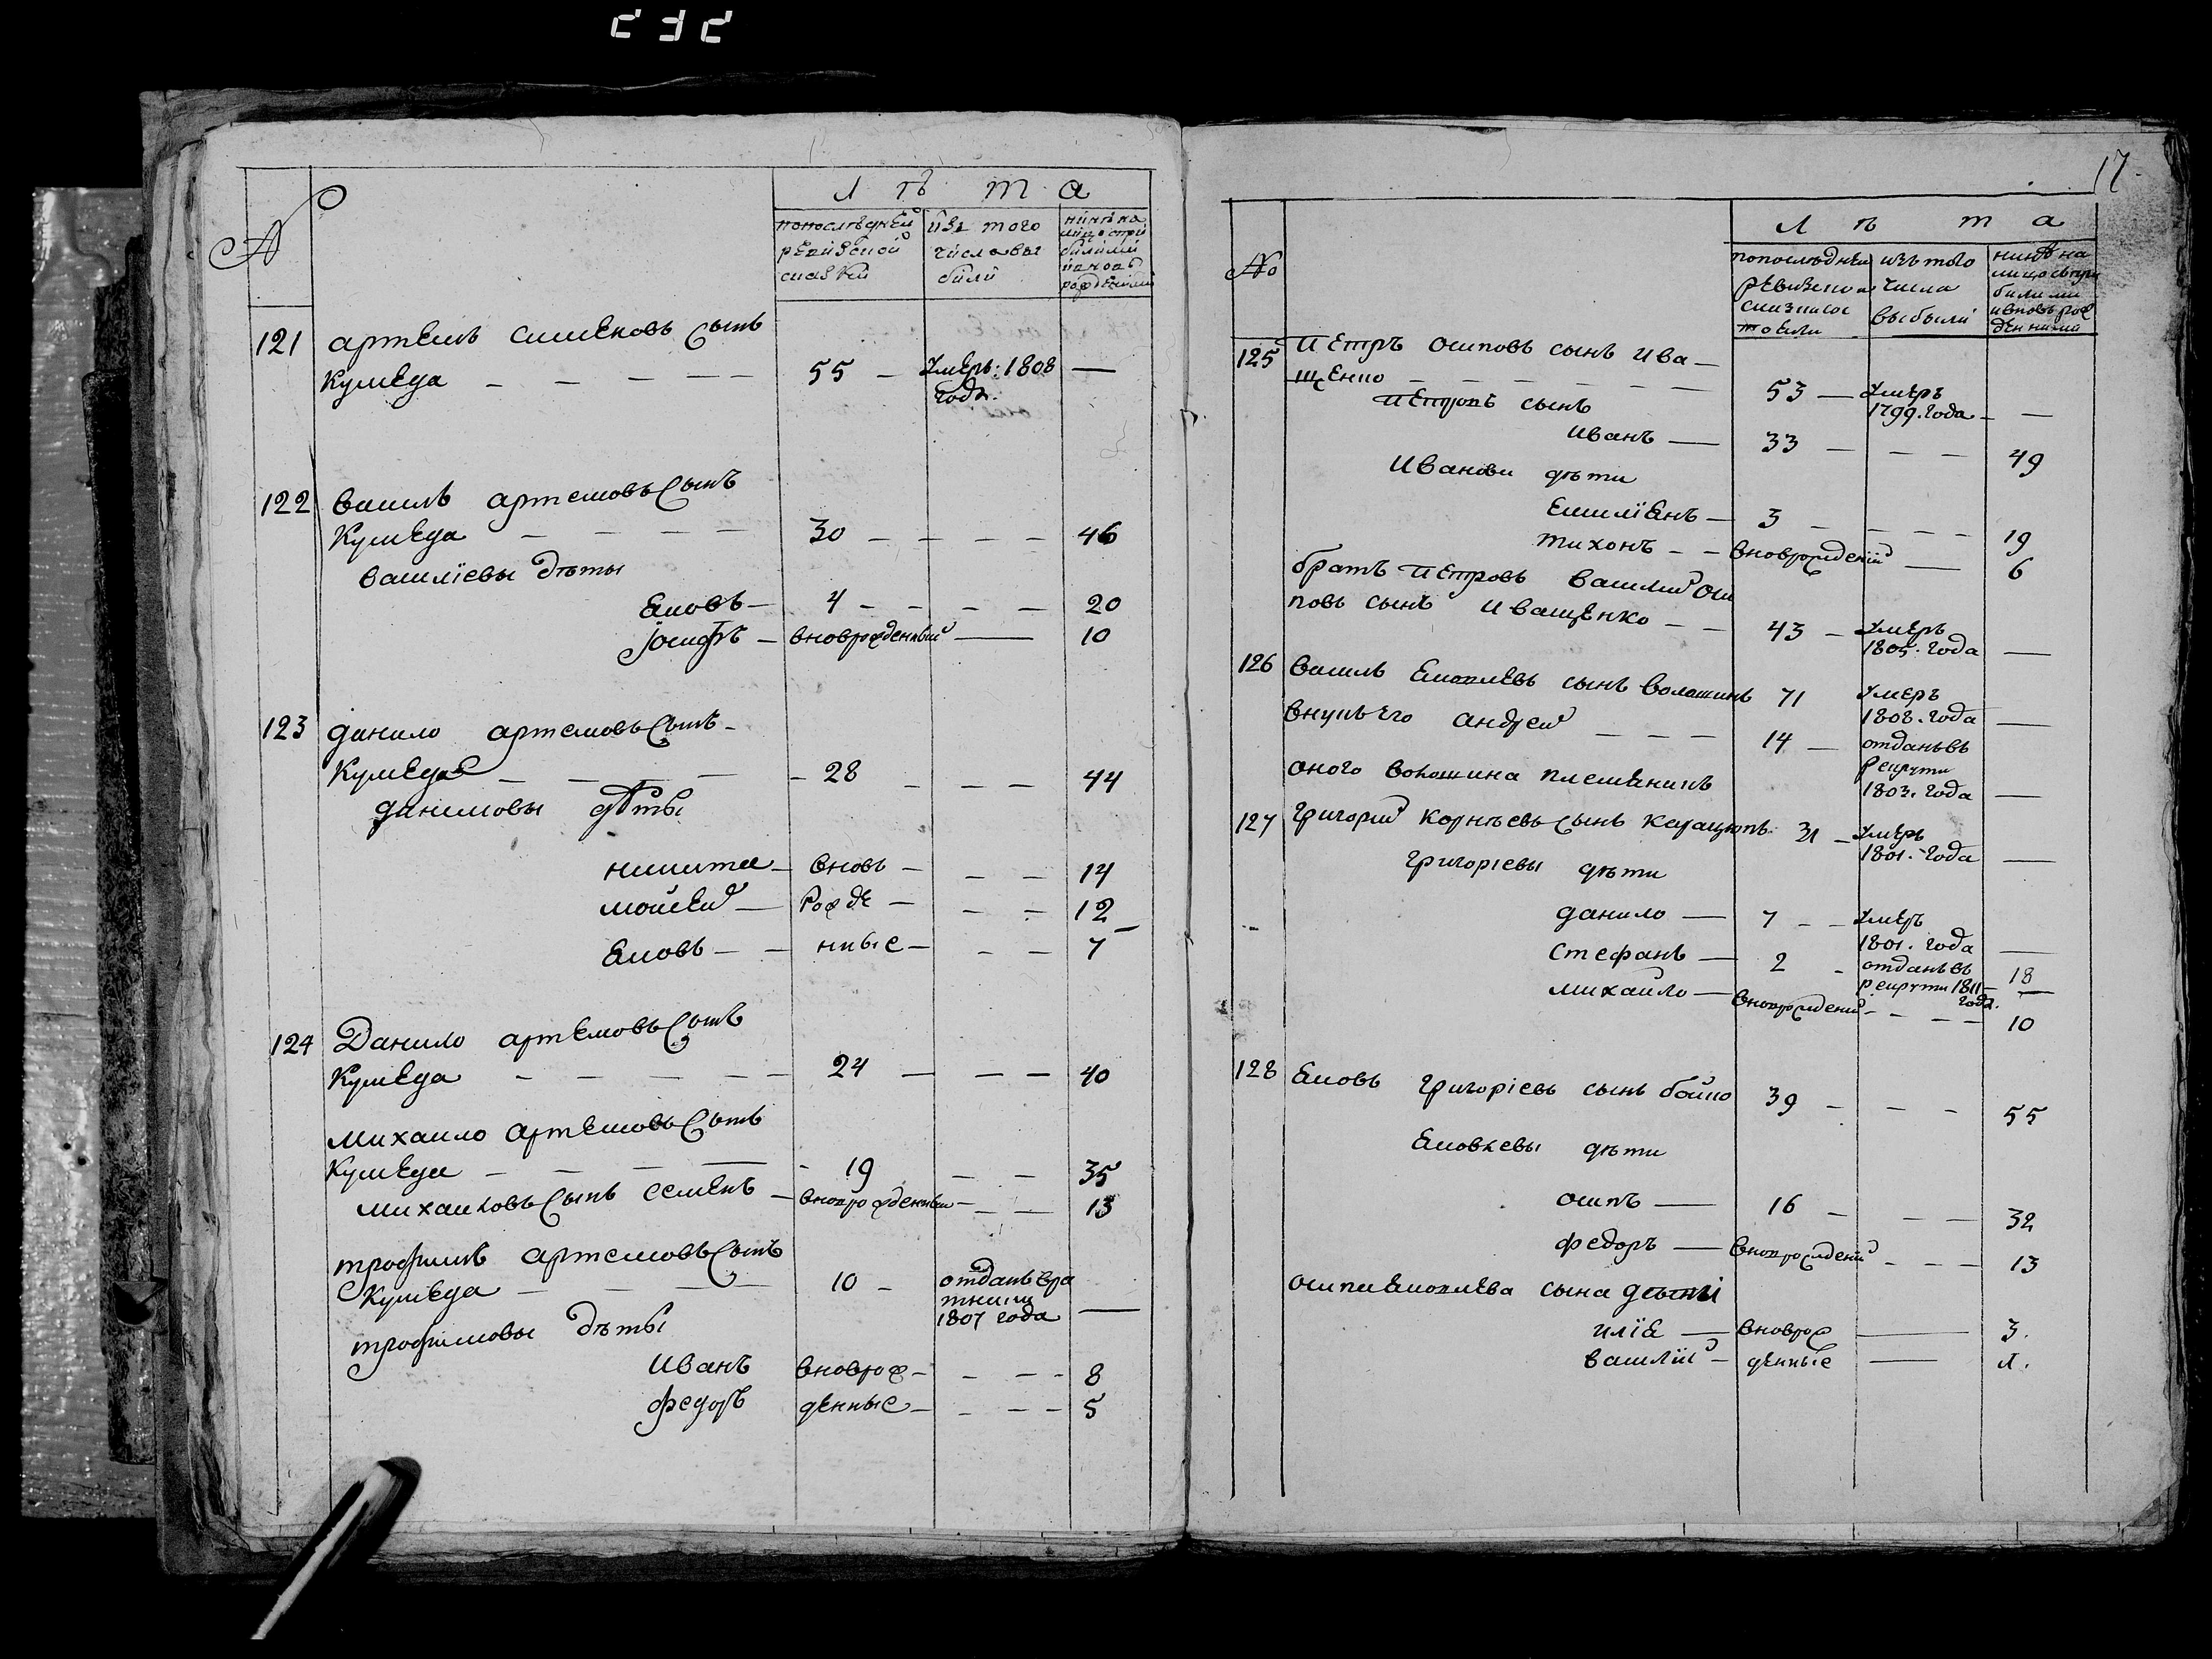 232
№
Лѣта
попослѣдней ревизской сказки
изъ того числа выбыли
ниинѣ на лицо сприбилими ивновь рожденими
121 Артемъ Сименовъ Сынъ
Кумеда — — — — 55 — Умеръ: 1808 года. —
122 Василь Артемовъ Сынъ
Кумеда — — — — 30 — — — — 46
Василіевы дѣты
Яковъ — 4 — — — — 20
Іосифъ — вноврожденный — 10
123 Данило Артемовъ Сынъ —
Кумеда — — — — 28 — — — 44
Даниловы дѣты
Никита — вновь — — — 14
Мойсей — рожде — — — 12
Яковъ — — нные — — — 7
124 Данило Артемовъ Сынъ
Кумеда — — — — — 24 — — — 40
Михаило Артемовъ Сынъ
Кумеда — — — — 19 — — 35
Михаиловъ Сынъ Семенъ — вноврожденный — — — 13
Трофимъ Артемовъ Сынъ
Кумеда — — — 10 — отданъ вра
тники
1807 года —
Трофимовы дѣты
Иванъ вноврож — — — — 8
Федоръ денные — — — — 5
17.
№
Лѣта
попослѣдней ревизской
изъ того числа выбыли
нинѣ на лицо съ при били ми ивновь рож денними
125 Петръ Осиповъ сынъ Ива —
щенко — — — — — — 53 — Умеръ
1799. года — —
Петровъ сынъ
Иванъ — 33 — — — 49
Иванови дѣти
Емиліянъ — 3 — — — — 19
Тихонъ — — вноврожденій — 6
братъ Петровъ Василий Оси
повъ сынъ Иващенко — — 43 — Умеръ
1805. года —
126 Василь Яковлевъ сынъ Волошинъ 71 Умеръ
1808. года —
Внукъ Его Андрей — — — 14 — отданъ въ
рекруты
1803. года —
оного Волошина племянникъ
127 Григорий Корнѣевъ Сынъ Карацюпъ 31 — Умеръ
1801. года —
Григоріевы дѣти
Данило — 7 — — Умеръ
1801. года —
Стефанъ — 2 — отданъ въ 18
рекрути 1811 —
года.
Михаило — вноврожденій — — — — 10
128 Яковъ Григоріевъ сынъ Бойко 39 — — — 55
Яковлевы дѣти
Осипъ — 16 — — — 32
Федоръ — вноврожденій — — — 13
Осипа Яковлева сына дѣтиі
Илія — вноврож — 3.
Василій — денные — 1.